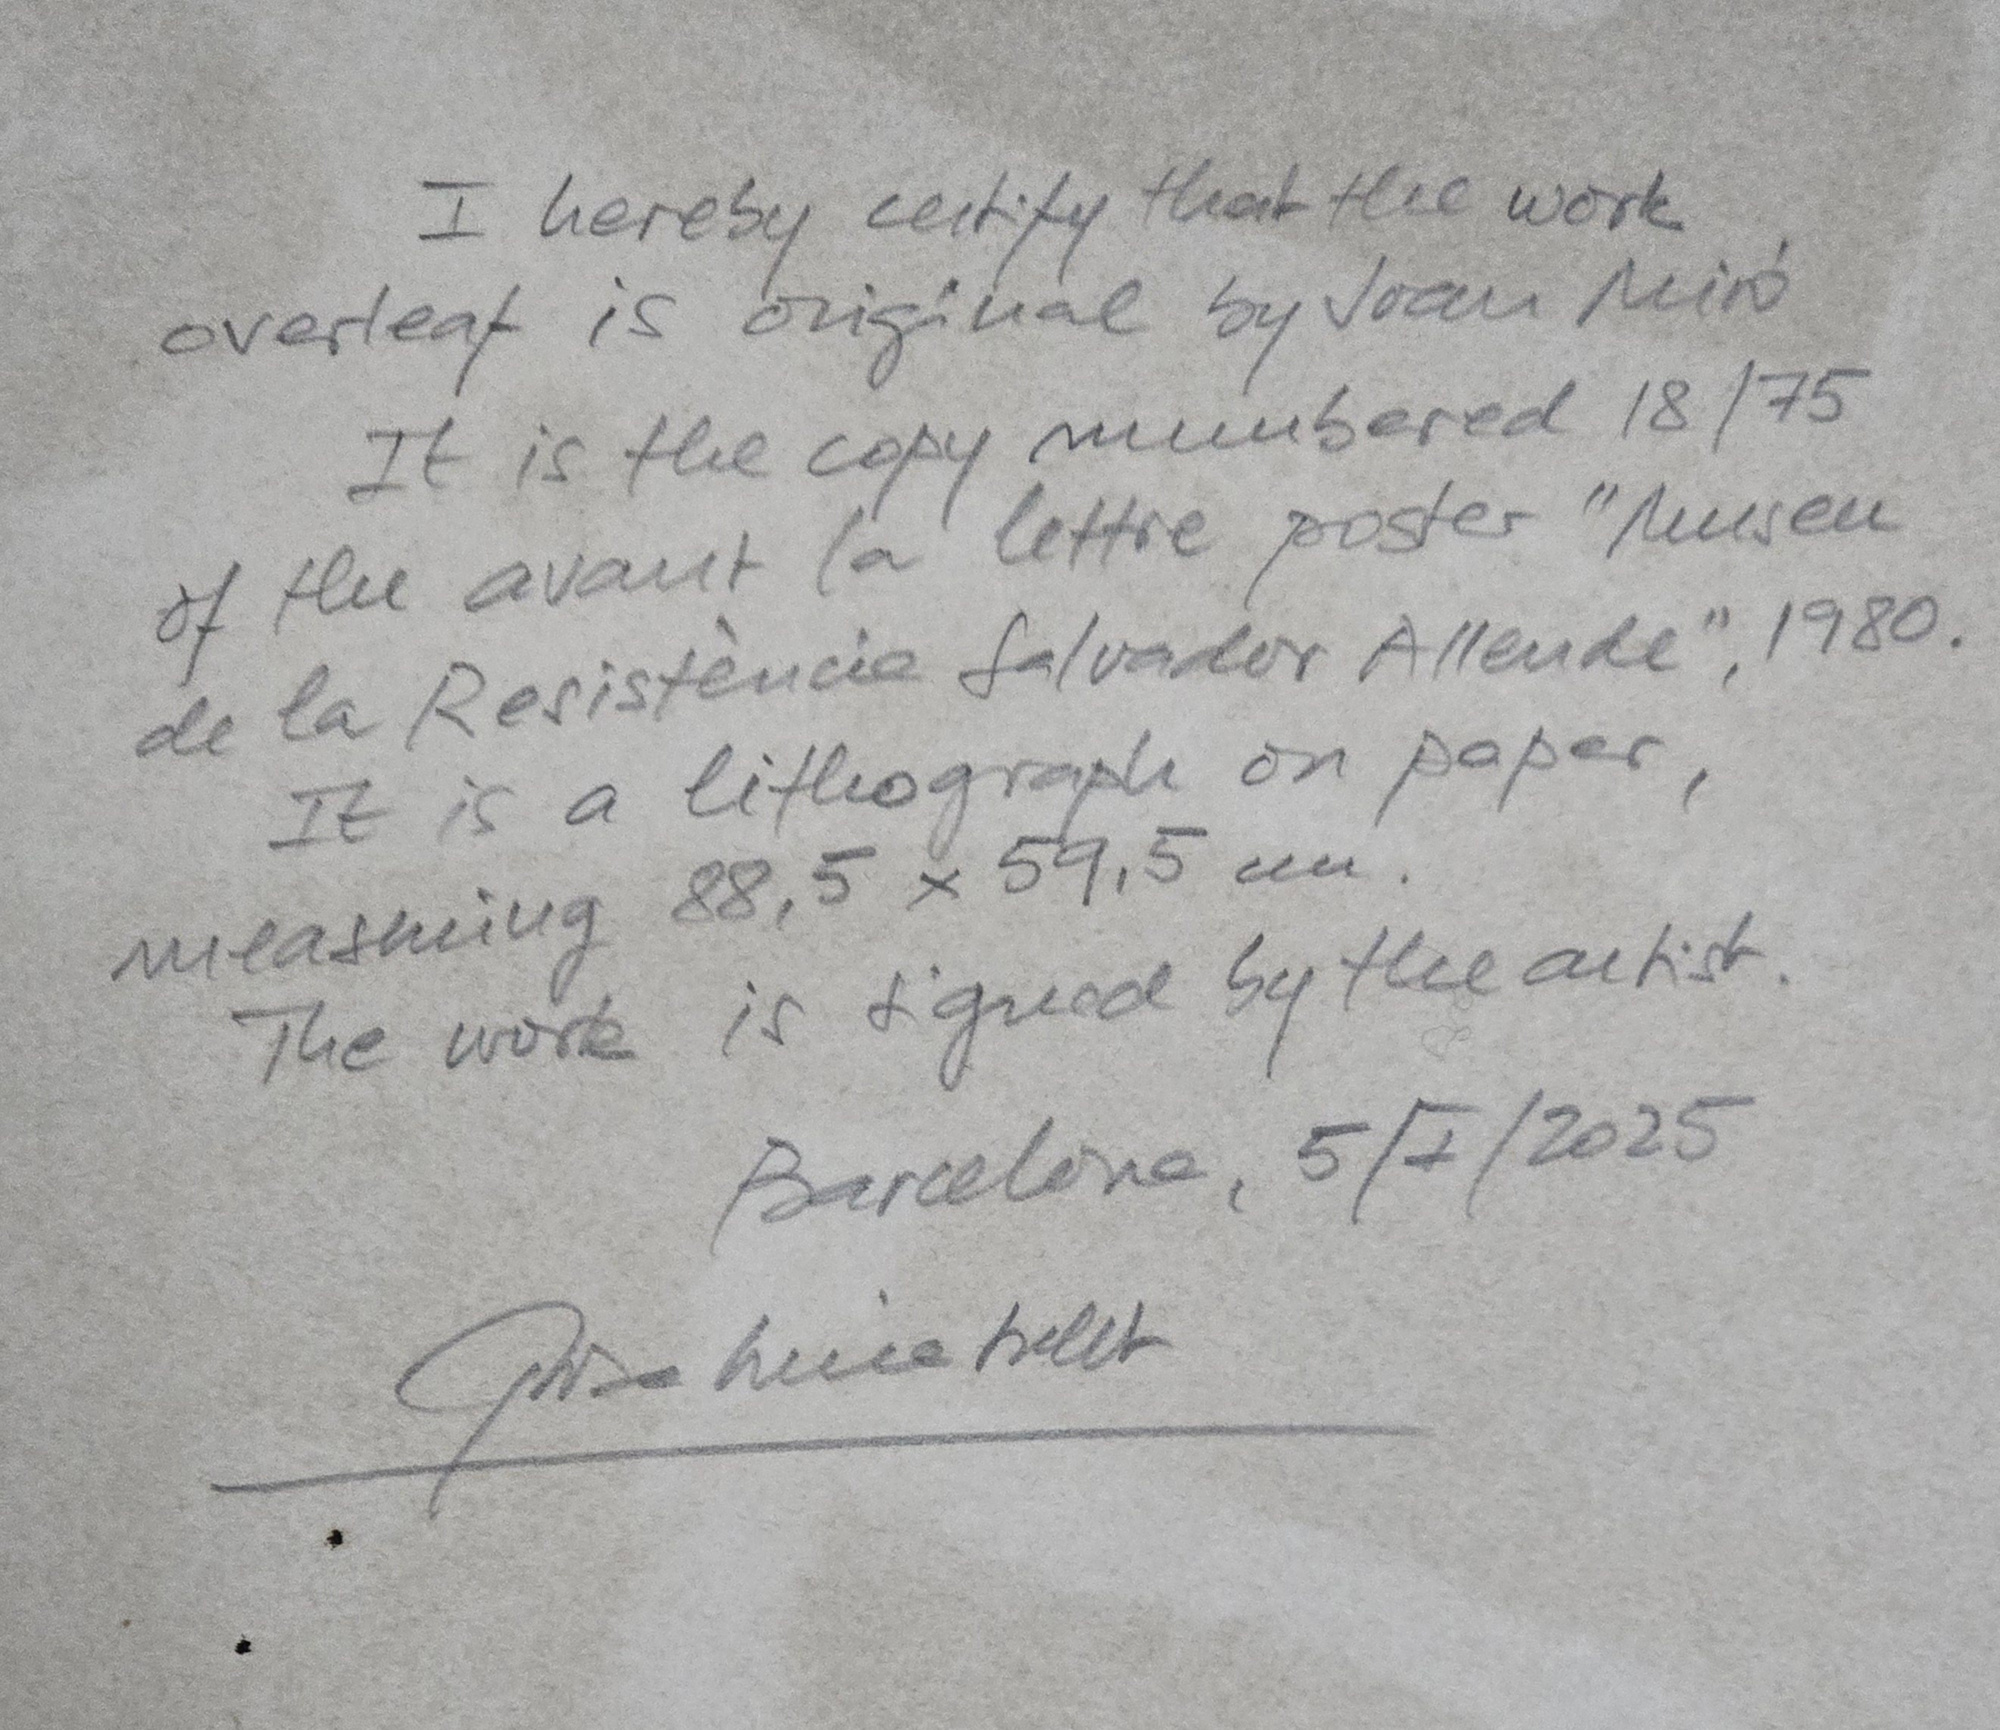 I hereby certify that the work
overleaf is original by Joan Miró
It is the copy numbered 18/75
of the avant la lettre poster "Museu
de la Resistència Salvador Allende", 1980.
It is a lithograph on paper,
measuring 88,5 x 59,5 cm.
The work is signed by the artist.
Barcelona, 5/I/2025